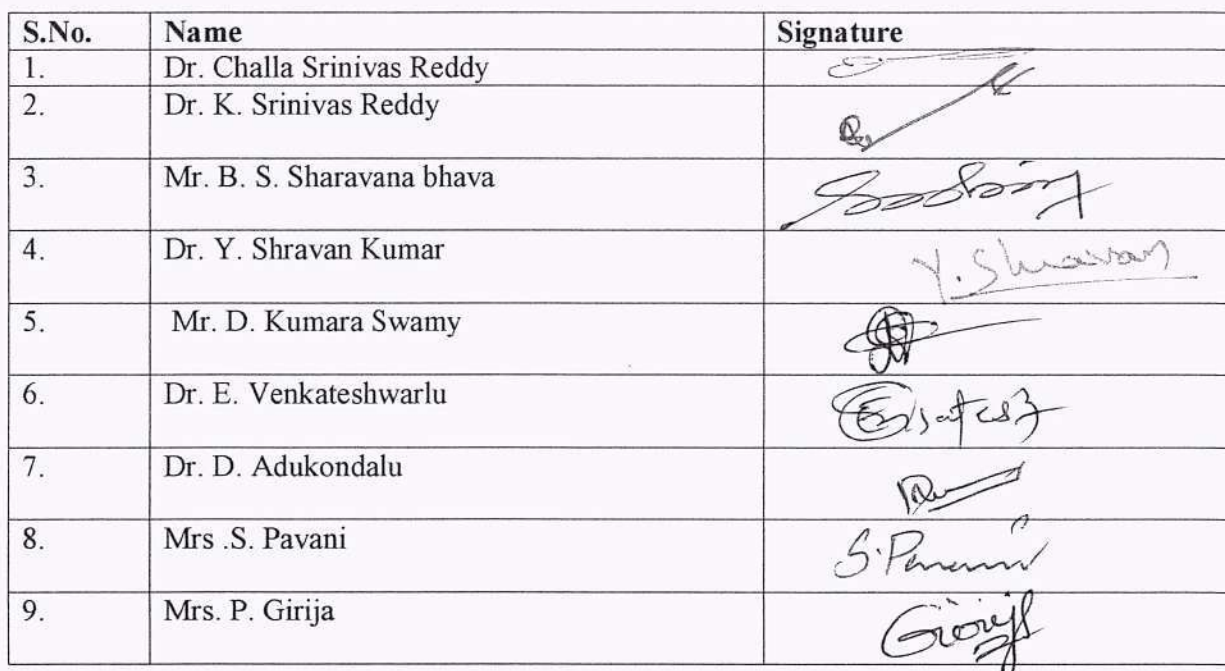 S.No. Name Signature
1. Dr. Challa Srinivas Reddy
2. Dr. K. Srinivas Reddy
3. Mr. B. S. Sharavana bhava
4. Dr. Y. Shravan Kumar Y. Shravan
5. Mr. D. Kumara Swamy
6. Dr. E. Venkateshwarlu
7. Dr. D. Adukondalu
8. Mrs .S. Pavani S. Pavani
9. Mrs. P. Girija